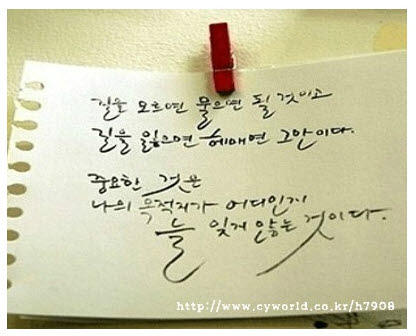 길을 모르면 물으면 될 것이고
길을 잃으면 헤매면 그만이다.
중요한 것은
나의 목적지가 어디인지
늘 잊지 않는 것이다.
http://www.cyworld.co.kr/h7908